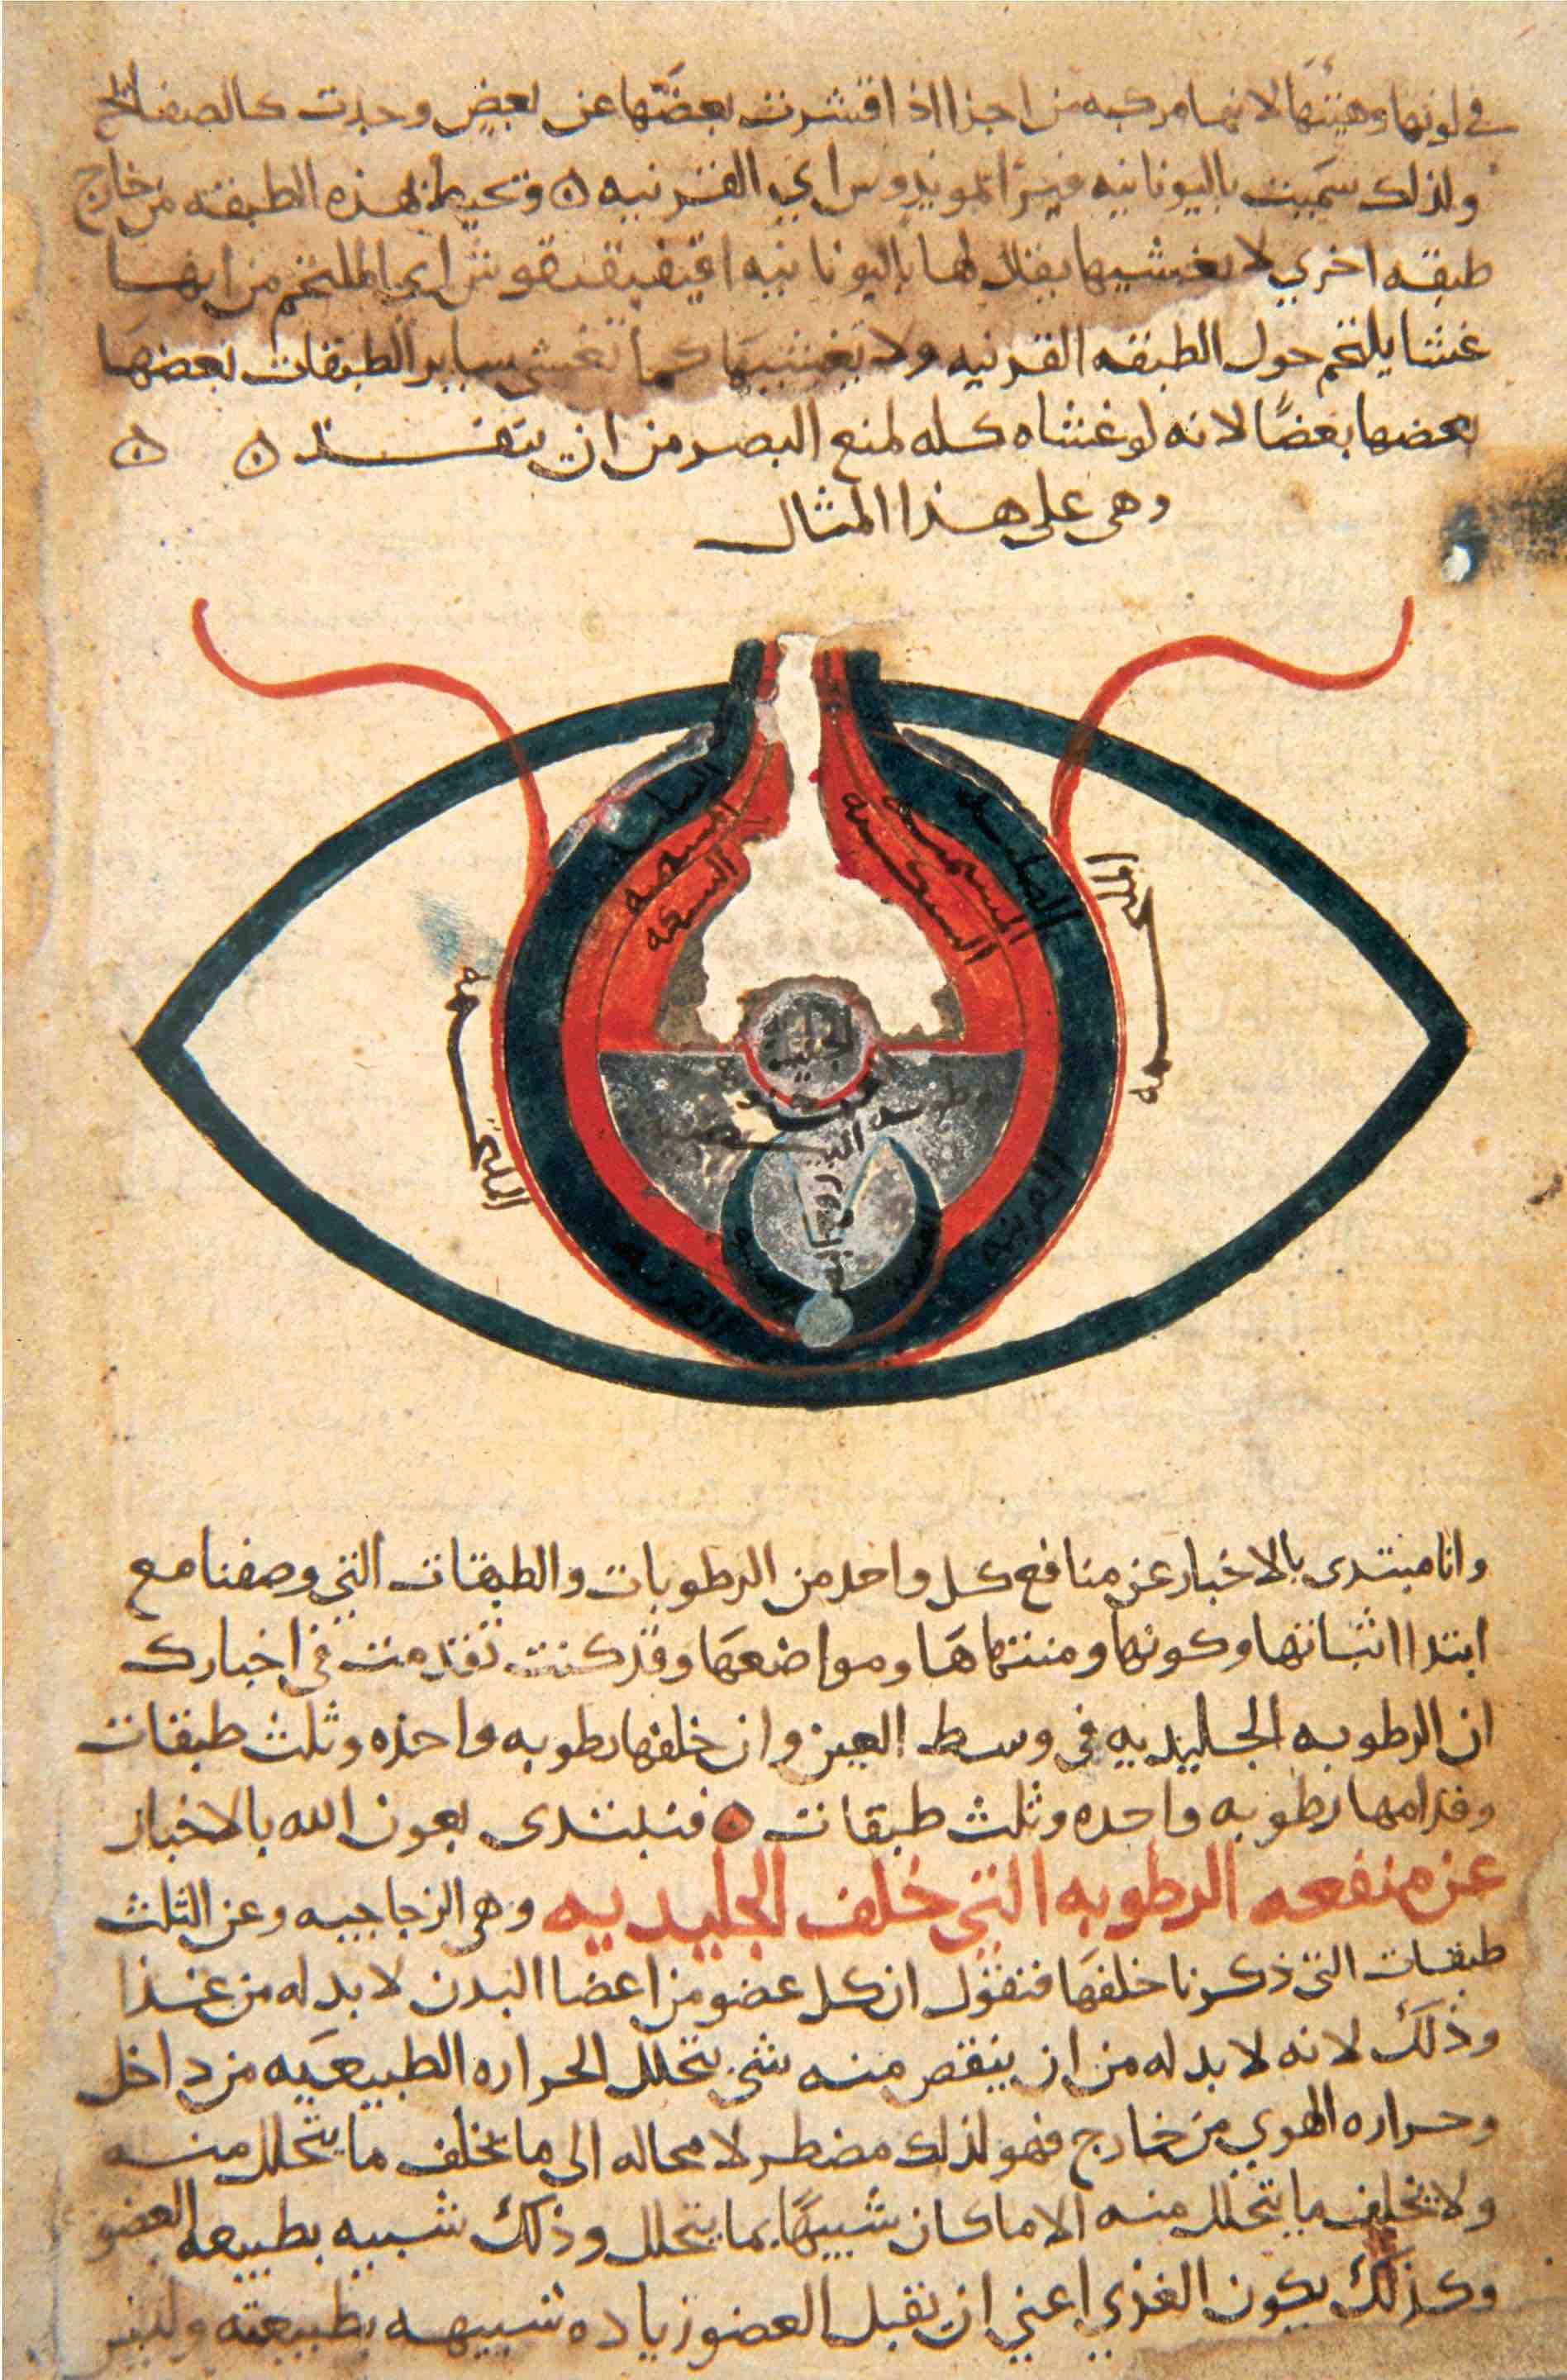 في لونها وهيئتها لانها مركبه من اجزا اذا اقتشرت بعضها عن بعض وجدت كالصفائح
ولذلك سميت باليونانيه قيراطويدوس اي القرنيه ٥ وتحيط بهذه الطبقه من خارج
طبقه اخري لا تغشيها يقال لها باليونانيه اي الملتحم من انها
غشا يلتحم حول الطبقه القرنيه ولا يغشيها كما تغشي ساير الطبقات بعضها
بعضها بعضًا لانه لو غشاه كله لمنع البصر من ان ينفذ ٥ ٥
وهي على هذا المثال
الصلبه
المشيميه
الشبكيه
الصلبه
المشيميه
الشبكيه
الملتحمه
الملتحمه
الجليديه
العنكبوتيه
الرطوبه
البيضيه
القرنيه
القرنيه
العنبيه
وانا مبتدى بالاخبار عن منافع كل واحد من الرطوبات والطبقات التي وصفنا مع
ابتدا اثباتها وكونها ومنتهاها ومواضعها وقد كنت تقدمت في اخبارك
ان الرطوبه الجليديه في وسط العين وان خلفها رطوبه واحده وثلث طبقات
وقدامها رطوبه واحده وثلث طبقات ٥ فنبتدى بعون الله بالاخبار
عن منفعه الرطوبه التي خلف الجليديه وهي الزجاجيه وعن الثلث
طبقات التي ذكرنا خلفها فنقول ان كل عضو من اعضا البدن لا بد له من غذا
وذلك لانه لا بد له من ان ينقص منه شي بتحلل الحراره الطبيعيه من داخل
وحراره الهوي من خارج فهو لذلك مضطر لا محاله الى ما يخلف ما يتحلل منه
ولا يخلف ما يتحلل منه الا ما كان شبيهًا بما يتحلل وذلك شبيه بطبيعه العضو
وكذلك يكون الغذي اعني ان تقبل العضو زياده شبيهه بطبيعته وليس